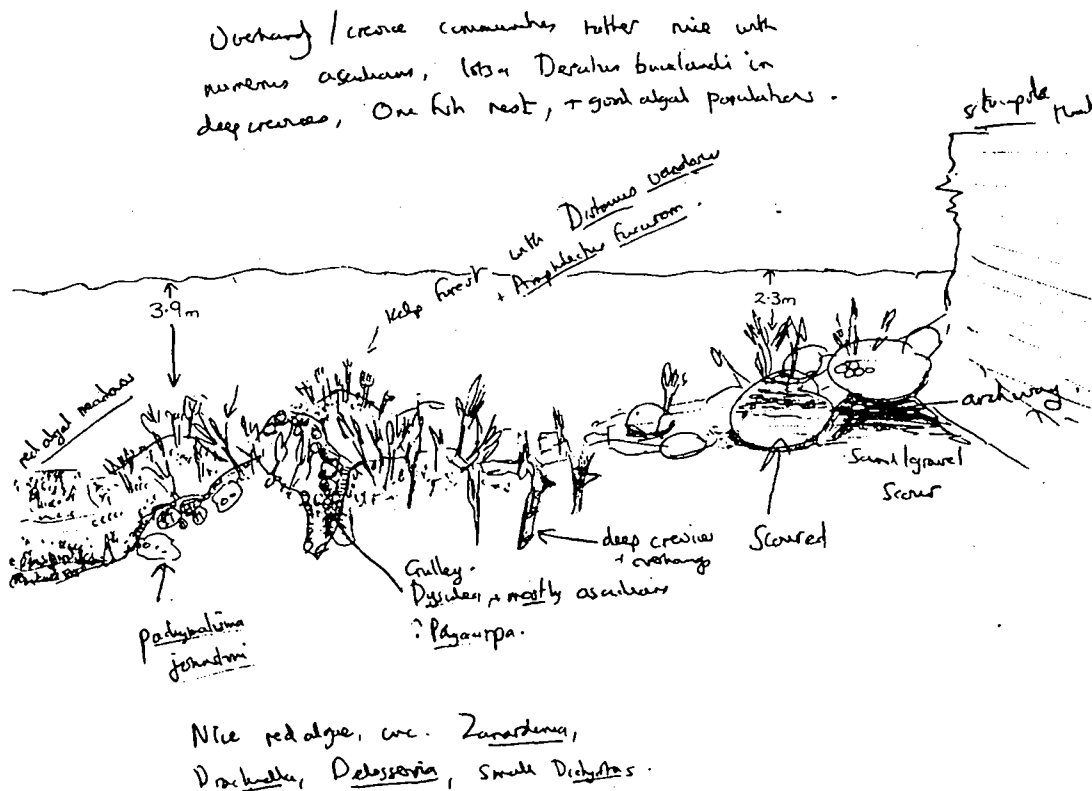 Overhang / crevice communities rather nice with
numerous ascidians, lots of Dercitus bucklandi in
deep crevices, One fish nest, + good algal populations.
Kelp forest with Distomus variolosus
+ Amphilectus fucorum.
3.9m
2.3m
red algal meadows
archway
Sand/gravel
Scour
Scoured
deep crevices
+ overhangs
Gulley.
Dysidea, + mostly ascidians
?
pachymatisma
johnstoni
Nice red algae, inc. Zanardinia,
Drachiella, Delesseria, small Dictyotas.